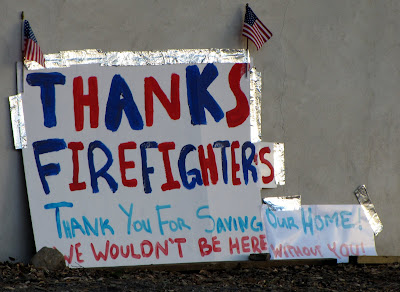 THANKS
FIREFIGHTERS
THANK YOU FOR SAVING OUR HOME!
WE WOULDN'T BE HERE WITHOUT YOU!